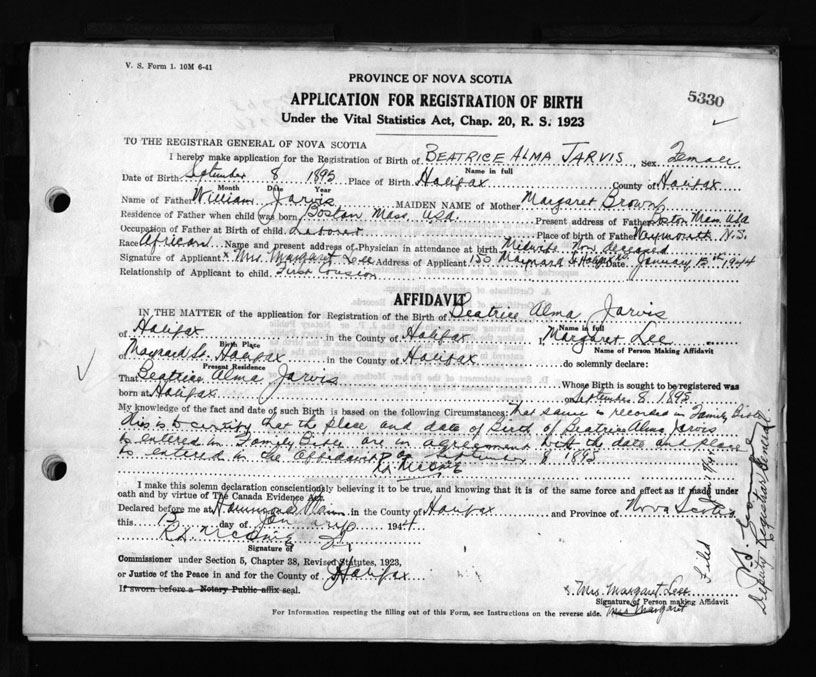 V. S. Form 1. 10M 6-41
PROVINCE OF NOVA SCOTIA
5330
APPLICATION FOR REGISTRATION OF BIRTH
Under the Vital Statistics Act, Chap. 20, R. S. 1923
TO THE REGISTRAR GENERAL OF NOVA SCOTIA
I hereby make application for the Registration of Birth of BEATRICE ALMA JARVIS, Sex Female
Name in full
Date of Birth September 8 1895 Place of Birth Halifax County of Halifax
Month Date Year
Name of Father William Jarvis MAIDEN NAME of Mother Margaret Brown
Residence of Father when child was born Boston Mass. USA Present address of Father Boston Mass USA
Occupation of Father at Birth of child Laborer Place of Birth of Father Weymouth N.S.
Race African Name and present address of Physician in attendance at birth Midwife deceased
Signature of Applicant x Mrs. Margaret Lee Address of Applicant 150 Maynard St Halifax Date January 13th 1944
Relationship of Applicant to child. First Cousion
AFFIDAVIT
IN THE MATTER of the application for Registration of the Birth of Beatrice Alma Jarvis
Name in full
of Halifax in the County of Halifax, Margaret Lee
Birth Place Name of Person Making Affidavit
of Maynard St. Halifax in the County of Halifax do solemnly declare:
Present Residence
That Beatrice Alma Jarvis Whose Birth is sought to be registered was
born at Halifax on September 8, 1895
My knowledge of the fact and date of such Birth is based on the following Circumstances: That same is recorded in Family Bible
This is to certify that the place and date of Birth of Beatrice Alma Jarvis
as entered in Family Bible are in agreement with the date and place
as entered in the Affidavit September 8 1895
I make this solemn declaration conscientiously believing it to be true, and knowing that it is of the same force and effect as if made under
oath and by virtue of The Canada Evidence Act.
Declared before me at Hammonds Plain in the County of Halifax and Province of Nova Scotia
this 13 day of January 1944
Signature of
Commissioner under Section 5, Chapter 38, Revised Statutes, 1923,
or Justice of the Peace in and for the County of Halifax
If sworn before a Notary Public affix seal.
x Mrs. Margaret Lee
Signature of Person making Affidavit
Mrs Margaret
For Information respecting the filling out of this Form, see Instructions on the reverse side.
Filed
Deputy Registrar General